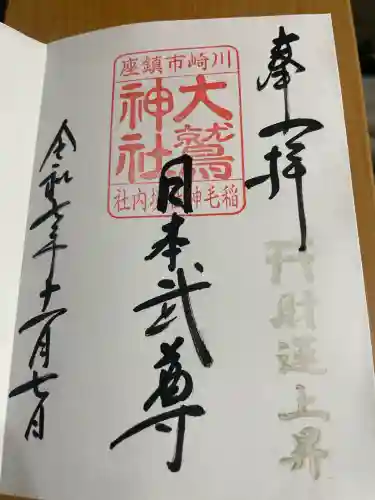 奉拝
財運上昇
川崎市鎮座
大鷲
神社
稲毛神社境内社
日本武尊
令和七年十一月七日